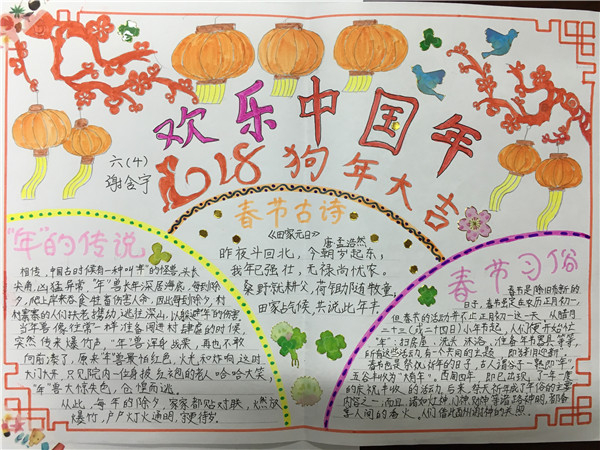 欢乐中国年
2018狗年大吉
六(4)
谢含宇
"年"的传说
相传,中国古时候有一种叫"年"的怪兽,头长
尖角,凶猛异常,"年"兽长年深居海底,每到除
夕,爬上岸来吞食牲畜伤害人命,因此每到除夕,村
村寨寨的人们扶老携幼,逃往深山,以躲避"年"的伤害
当年兽像往常一样准备闯进村肆虐的时候,
突然传来爆竹声,"年"兽浑身战栗,再也不敢
向前凑了,原来"年"兽最怕红色,火光和炸响,这时
大门大开,只见院内一位身披红袍的老人哈哈大笑,
"年"兽大惊失色,仓惶而逃
从此,每年的除夕,家家都贴对联,燃放
爆竹,户户灯火通明,守更待岁
春节古诗
《田家元日》
唐:孟浩然
昨夜斗回北,今朝岁起东;
我年已强壮,无禄尚忧农。
桑野就耕父,荷锄随牧童;
田家占气候,共说此年丰。
春节习俗
春节是除旧布新的
日子,春节虽定在农历正月初一,
但春节的活动并不止正月初一这一天,从腊月
二十三(或二十四日)小年节起,人们便开始"忙
年":扫房屋、洗头沐浴、准备年节器具等等,
所有这些活动,有一个共同的主题,即"辞旧迎新"。
春节也是祭祝祈年的日子,古人谓谷子一熟即"年"
五谷丰收为"大有年"。西周初年,即已出现了一年一度
的庆祝丰收的活动。后来,祭天祈年成了年俗的主要
内容之一;而且,诸如灶神、门神、财神、